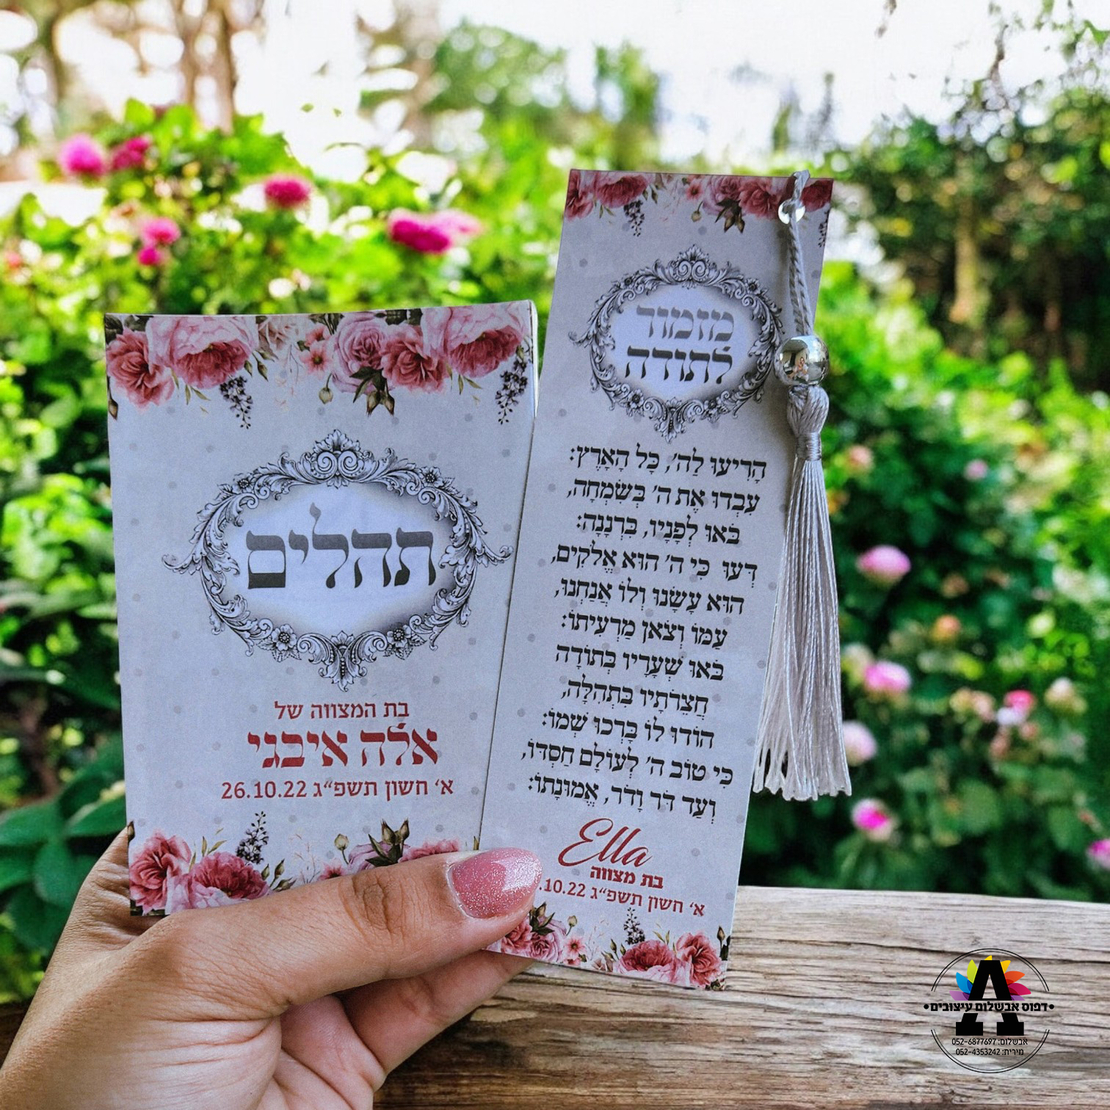 תהלים
בת המצווה של
אלה איבגי
א׳ חשון תשפ״ג 26.10.22
מזמור
לתודה
הָרִיעוּ לַה׳, כָּל הָאָרֶץ:
עִבְדוּ אֶת ה׳ בְּשִׂמְחָה,
בֹּאוּ לְפָנָיו, בִּרְנָנָה:
דְּעוּ כִּי ה׳ הוּא אֱלֹקִים,
הוּא עָשָׂנוּ וְלוֹ אֲנַחְנוּ,
עַמּוֹ וְצֹאן מַרְעִיתוֹ:
בֹּאוּ שְׁעָרָיו בְּתוֹדָה
חֲצֵרֹתָיו בִּתְהִלָּה,
הוֹדוּ לוֹ בָּרְכוּ שְׁמוֹ:
כִּי טוֹב ה׳ לְעוֹלָם חַסְדּוֹ,
וְעַד דֹּר וָדֹר, אֱמוּנָתוֹ:
Ella
בת מצווה
א׳ חשון תשפ״ג .10.22
A
•דפוס אבשלום עיצובים•
אבשלום: 052-6877697
מירית: 052-4353242